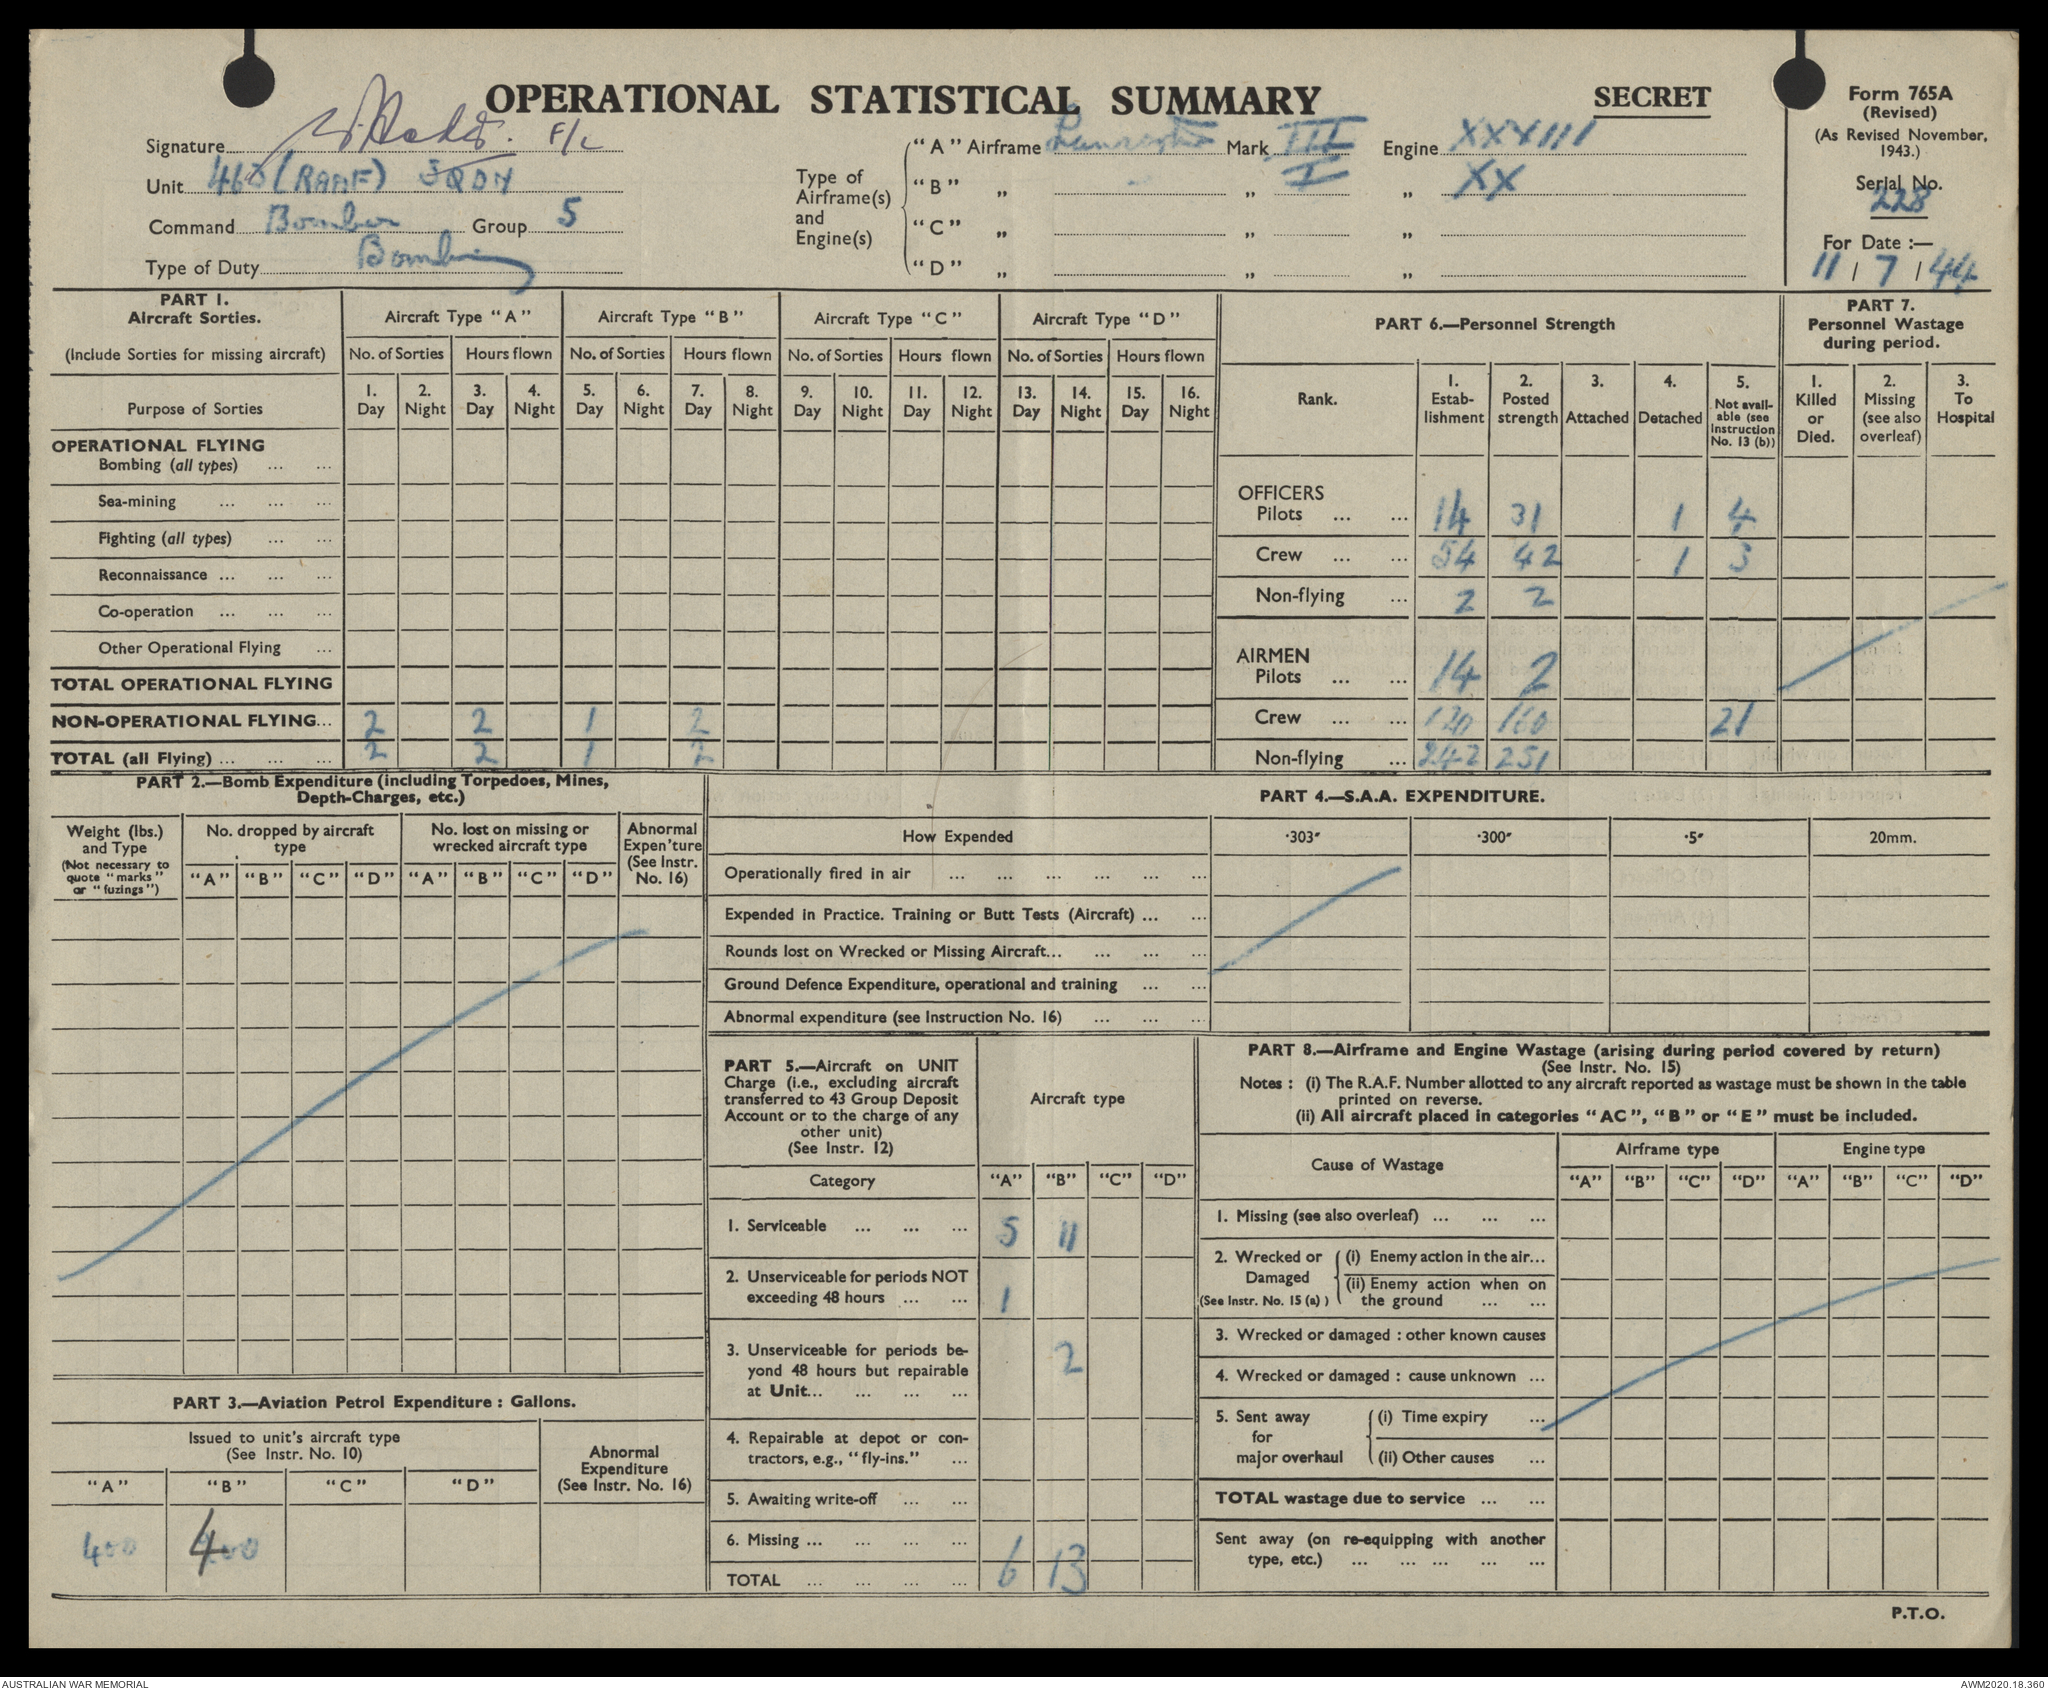 OPERATIONAL STATISTICAL SUMMARY
SECRET
Form 765A
(Revised)
(As Revised November, 1943.)
Serial No.
228
For Date :—
11 / 7 / 44
Signature F/L
Unit 463 (RAAF) SQDN
Command Bomber Group 5
Type of Duty Bombing
Type of Airframe(s) and Engine(s)
"A" Airframe Lancaster Mark III Engine XXXIII
"B" „ „ I „ XX
"C" „ „ „
"D" „ „ „
PART 1.
Aircraft Sorties.
(Include Sorties for missing aircraft)
Aircraft Type "A" Aircraft Type "B" Aircraft Type "C" Aircraft Type "D"
No. of Sorties Hours flown No. of Sorties Hours flown No. of Sorties Hours flown No. of Sorties Hours flown
Purpose of Sorties
1. Day 2. Night 3. Day 4. Night 5. Day 6. Night 7. Day 8. Night 9. Day 10. Night 11. Day 12. Night 13. Day 14. Night 15. Day 16. Night
OPERATIONAL FLYING
Bombing (all types) ... ...
Sea-mining ... ... ...
Fighting (all types) ... ...
Reconnaissance ... ... ...
Co-operation ... ... ...
Other Operational Flying ...
TOTAL OPERATIONAL FLYING
NON-OPERATIONAL FLYING... 2 2 1 2
TOTAL (all Flying) ... ... ... 2 2 1 2
PART 6.—Personnel Strength
Rank.
1. Estab-lishment
2. Posted strength
3. Attached
4. Detached
5. Not avail-able (see Instruction No. 13 (b))
OFFICERS
Pilots ... ... 14 31 1 4
Crew ... ... 54 42 1 3
Non-flying ... 2 2
AIRMEN
Pilots ... ... 14 2
Crew ... ... 120 160 21
Non-flying ... 242 251
PART 7.
Personnel Wastage during period.
1. Killed or Died.
2. Missing (see also overleaf)
3. To Hospital
PART 2.—Bomb Expenditure (including Torpedoes, Mines,
Depth-Charges, etc.)
Weight (lbs.) and Type
(Not necessary to quote "marks" or "fuzings")
No. dropped by aircraft type
No. lost on missing or wrecked aircraft type
Abnormal Expen'ture (See Instr. No. 16)
"A" "B" "C" "D" "A" "B" "C" "D"
PART 4.—S.A.A. EXPENDITURE.
How Expended ·303" ·300" ·5" 20mm.
Operationally fired in air ... ... ... ... ... ...
Expended in Practice. Training or Butt Tests (Aircraft) ... ...
Rounds lost on Wrecked or Missing Aircraft... ... ... ...
Ground Defence Expenditure, operational and training ... ...
Abnormal expenditure (see Instruction No. 16) ... ... ...
PART 3.—Aviation Petrol Expenditure : Gallons.
Issued to unit's aircraft type
(See Instr. No. 10)
Abnormal Expenditure (See Instr. No. 16)
"A" "B" "C" "D"
400 400
PART 5.—Aircraft on UNIT
Charge (i.e., excluding aircraft
transferred to 43 Group Deposit
Account or to the charge of any
other unit)
(See Instr. 12)
Aircraft type
Category "A" "B" "C" "D"
1. Serviceable ... ... ... 5 11
2. Unserviceable for periods NOT
exceeding 48 hours ... ... 1
3. Unserviceable for periods be-
yond 48 hours but repairable
at Unit... ... ... ... 2
4. Repairable at depot or con-
tractors, e.g., "fly-ins." ...
5. Awaiting write-off ... ...
6. Missing ... ... ... ...
TOTAL ... ... ... ... 6 13
PART 8.—Airframe and Engine Wastage (arising during period covered by return)
(See Instr. No. 15)
Notes : (i) The R.A.F. Number allotted to any aircraft reported as wastage must be shown in the table
printed on reverse.
(ii) All aircraft placed in categories "AC", "B" or "E" must be included.
Cause of Wastage Airframe type Engine type
"A" "B" "C" "D" "A" "B" "C" "D"
1. Missing (see also overleaf) ... ... ...
2. Wrecked or Damaged
(See Instr. No. 15 (a) )
(i) Enemy action in the air...
(ii) Enemy action when on
the ground ... ...
3. Wrecked or damaged : other known causes
4. Wrecked or damaged : cause unknown ...
5. Sent away for major overhaul
(i) Time expiry ...
(ii) Other causes ...
TOTAL wastage due to service ... ...
Sent away (on re-equipping with another
type, etc.) ... ... ... ... ...
P.T.O.
AUSTRALIAN WAR MEMORIAL
AWM2020.18.360